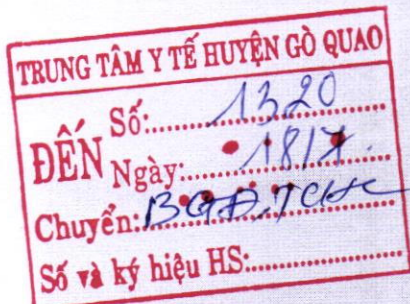 TRUNG TÂM Y TẾ HUYỆN GÒ QUAO
ĐẾN
Số:.......1320
Ngày:.......18/7.
Chuyển: BGĐ.TCHC
Số và ký hiệu HS:................